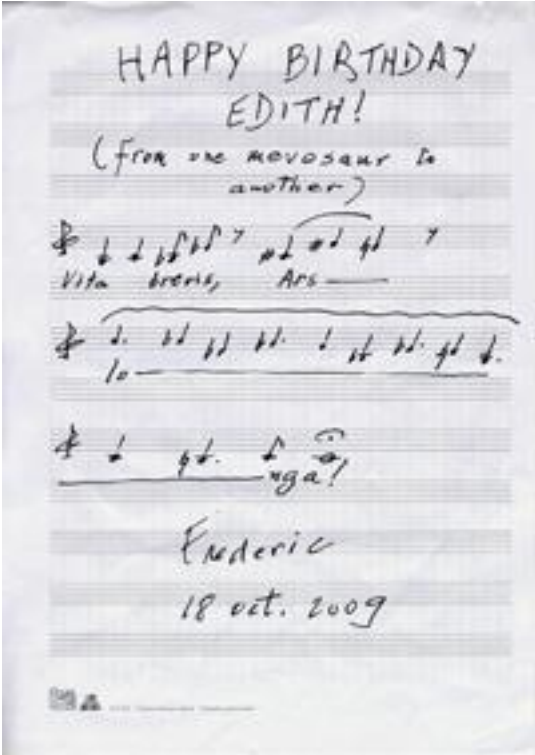 HAPPY BIRTHDAY
EDITH!
(from one movosaur to
another)
Vita brevis, Ars
lo
nga!
Frederic
18 oct. 2009